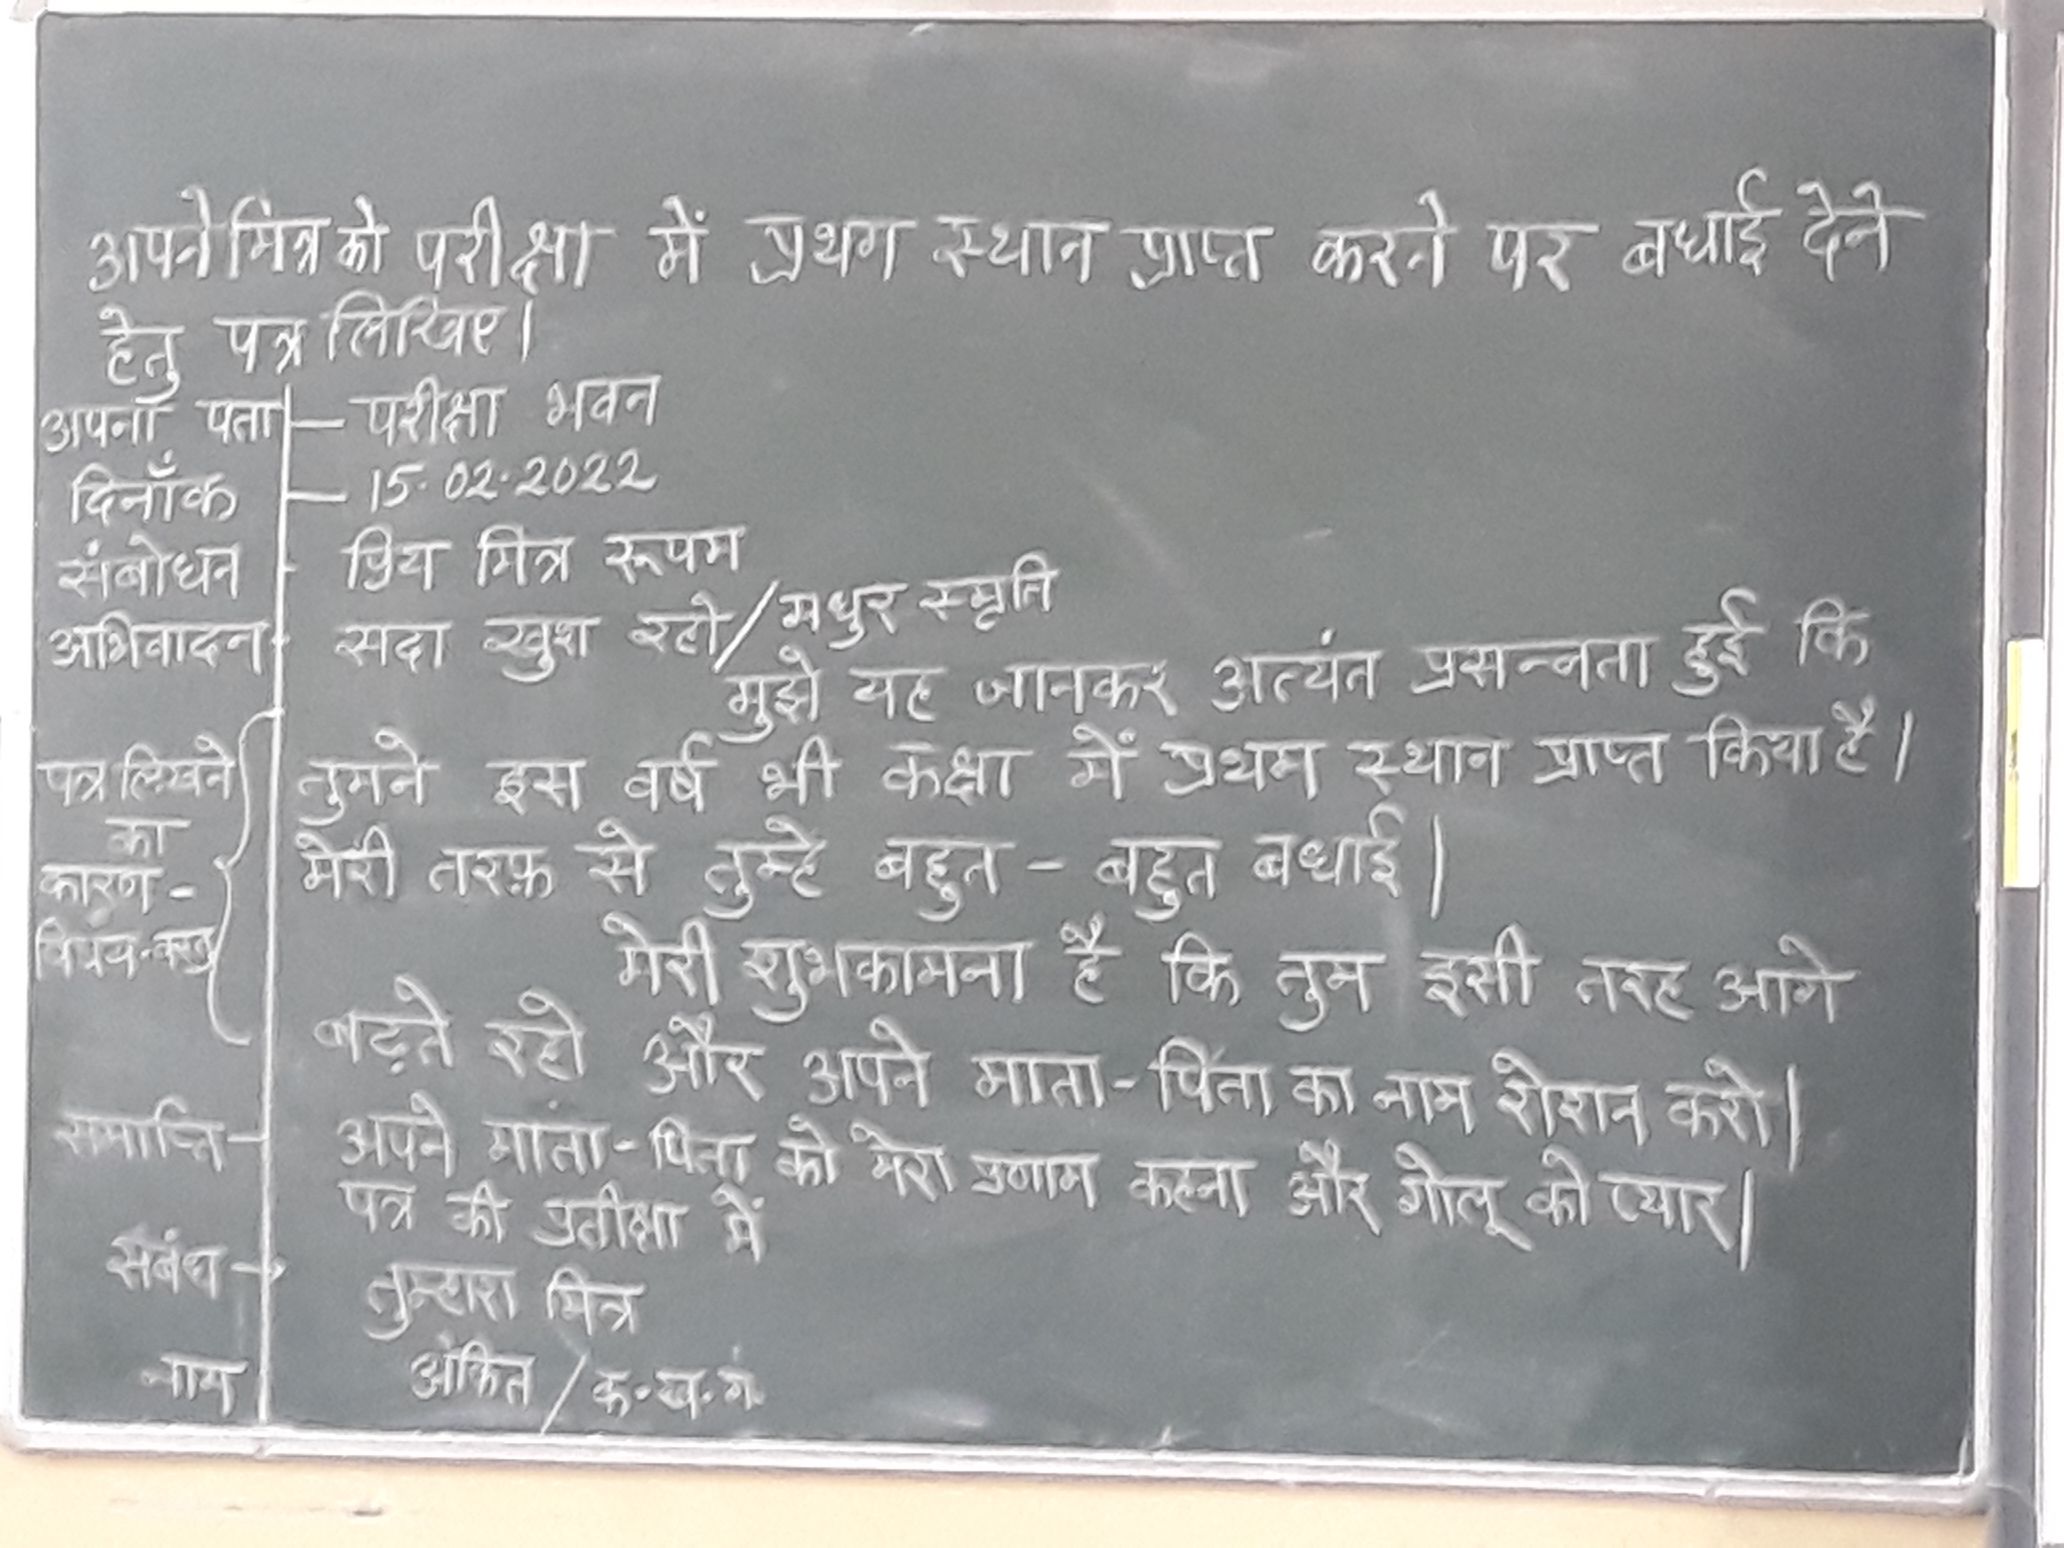 अपने मित्र को परीक्षा में प्रथम स्थान प्राप्त करने पर बधाई देने
हेतु पत्र लिखिए।
अपना पता — परीक्षा भवन
दिनाँक — 15.02.2022
संबोधन - प्रिय मित्र रूपम
अभिवादन - सदा खुश रहो/मधुर स्मृति
मुझे यह जानकर अत्यंत प्रसन्नता हुई कि
पत्र लिखने तुमने इस वर्ष भी कक्षा में प्रथम स्थान प्राप्त किया है।
का
मेरी तरफ़ से तुम्हे बहुत - बहुत बधाई।
कारण -
मेरी शुभकामना है कि तुम इसी तरह आगे
बढ़ते रहो और अपने माता-पिता का नाम रोशन करो।
समाप्ति - अपने माता-पिता को मेरा प्रणाम कहना और गोलू को प्यार।
पत्र की प्रतीक्षा में
संबंध - तुम्हारा मित्र
नाम अंकित / क.ख.ग.